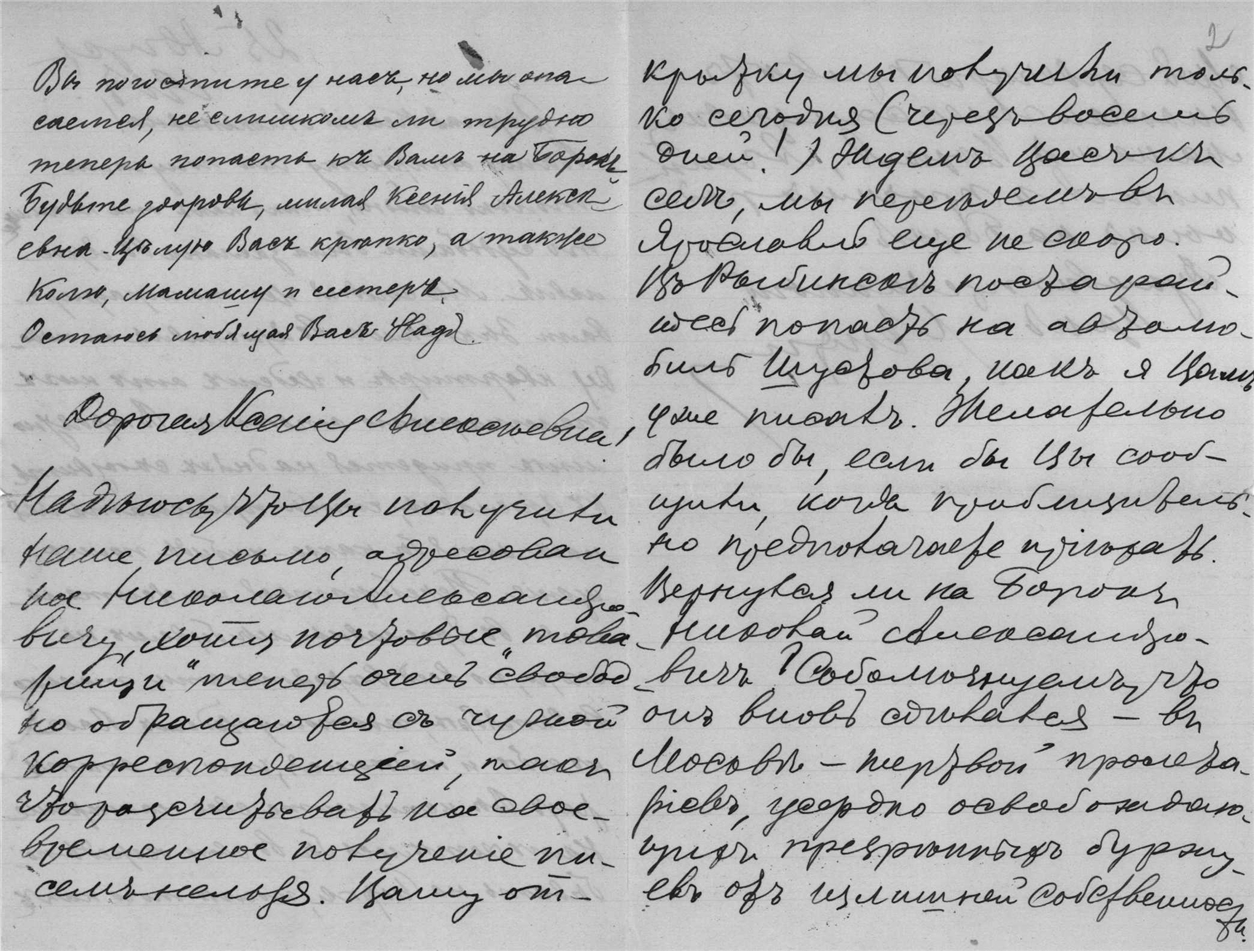 Вы погостите у насъ, но мы опа-
саемся, не слишкомъ ли трудно
теперь попасть къ Вамъ на Борокъ
Будьте здоровы, милая Ксенія Алексѣ-
евна. Цѣлую Васъ крѣпко, а также
Колю, мамашу и сестеръ.
Остаюсь любящая Васъ Надя.
Дорогая Ксенія Алексѣевна!
Надѣюсь, что Вы получили
наше письмо, адресован
ное Николаю Александро-
вичу, хотя почтовые "това-
рищи" теперь очень "свобод
но обращаются съ чужой
корреспонденціей, такъ
что разсчитывать на свое-
временное полученіе пи-
семъ нельзя. Вашу от-
2
крытку мы получили толь-
ко сегодня (черезъ восемь
дней!) Ждемъ Васъ къ
себѣ, мы переѣдемъ въ
Ярославль еще не скоро.
Въ Рыбинскѣ постарай-
тесь попасть на автомо-
биль Шустова, какъ я Вамъ
уже писалъ. Желательно
было бы, если бы Вы сооб-
щили, когда приблизитель-
но предполагаете пріѣхать.
Вернулся ли на Борокъ
Николай Александро-
вичъ? Соболѣзнуемъ, что
онъ вновь сдѣлался – въ
Москвѣ – жертвой пролета-
ріевъ, усердно освобождаю-
щихъ презрѣнныхъ буржу-
евъ отъ излишней собственнос-
ти.